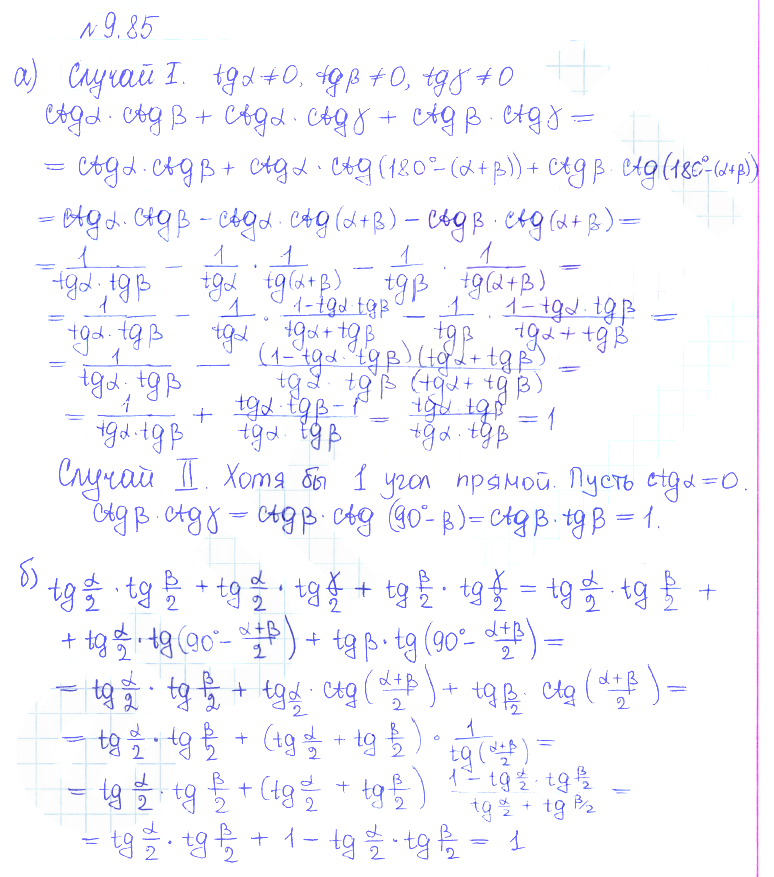 №9.85
а) Случай I. tgα≠0, tgβ≠0, tgγ≠0
ctgα·ctgβ + ctgα·ctgγ + ctgβ·ctgγ =
= ctgα·ctgβ + ctgα·ctg(180°-(α+β)) + ctgβ·ctg(180°-(α+β))
= ctgα·ctgβ - ctgα·ctg(α+β) - ctgβ·ctg(α+β) =
= 1/(tgα·tgβ) - 1/tgα · 1/tg(α+β) - 1/tgβ · 1/tg(α+β) =
= 1/(tgα·tgβ) - 1/tgα · (1-tgα·tgβ)/(tgα+tgβ) - 1/tgβ · (1-tgα·tgβ)/(tgα+tgβ) =
= 1/(tgα·tgβ) - (1-tgα·tgβ)(tgα+tgβ)/(tgα·tgβ (tgα+tgβ)) =
= 1/(tgα·tgβ) + (tgα·tgβ-1)/(tgα·tgβ) = (tgα·tgβ)/(tgα·tgβ) = 1
Случай II. Хотя бы 1 угол прямой. Пусть ctgα=0.
ctgβ·ctgγ = ctgβ·ctg(90°-β) = ctgβ·tgβ = 1.
б) tg α/2 · tg β/2 + tg α/2 · tg γ/2 + tg β/2 · tg γ/2 = tg α/2 · tg β/2 +
+ tg α/2 · tg(90° - (α+β)/2) + tgβ · tg(90° - (α+β)/2) =
= tg α/2 · tg β/2 + tg α/2 · ctg((α+β)/2) + tg β/2 · ctg((α+β)/2) =
= tg α/2 · tg β/2 + (tg α/2 + tg β/2) · 1/tg((α+β)/2) =
= tg α/2 · tg β/2 + (tg α/2 + tg β/2) (1 - tg α/2 · tg β/2)/(tg α/2 + tg β/2) =
= tg α/2 · tg β/2 + 1 - tg α/2 · tg β/2 = 1